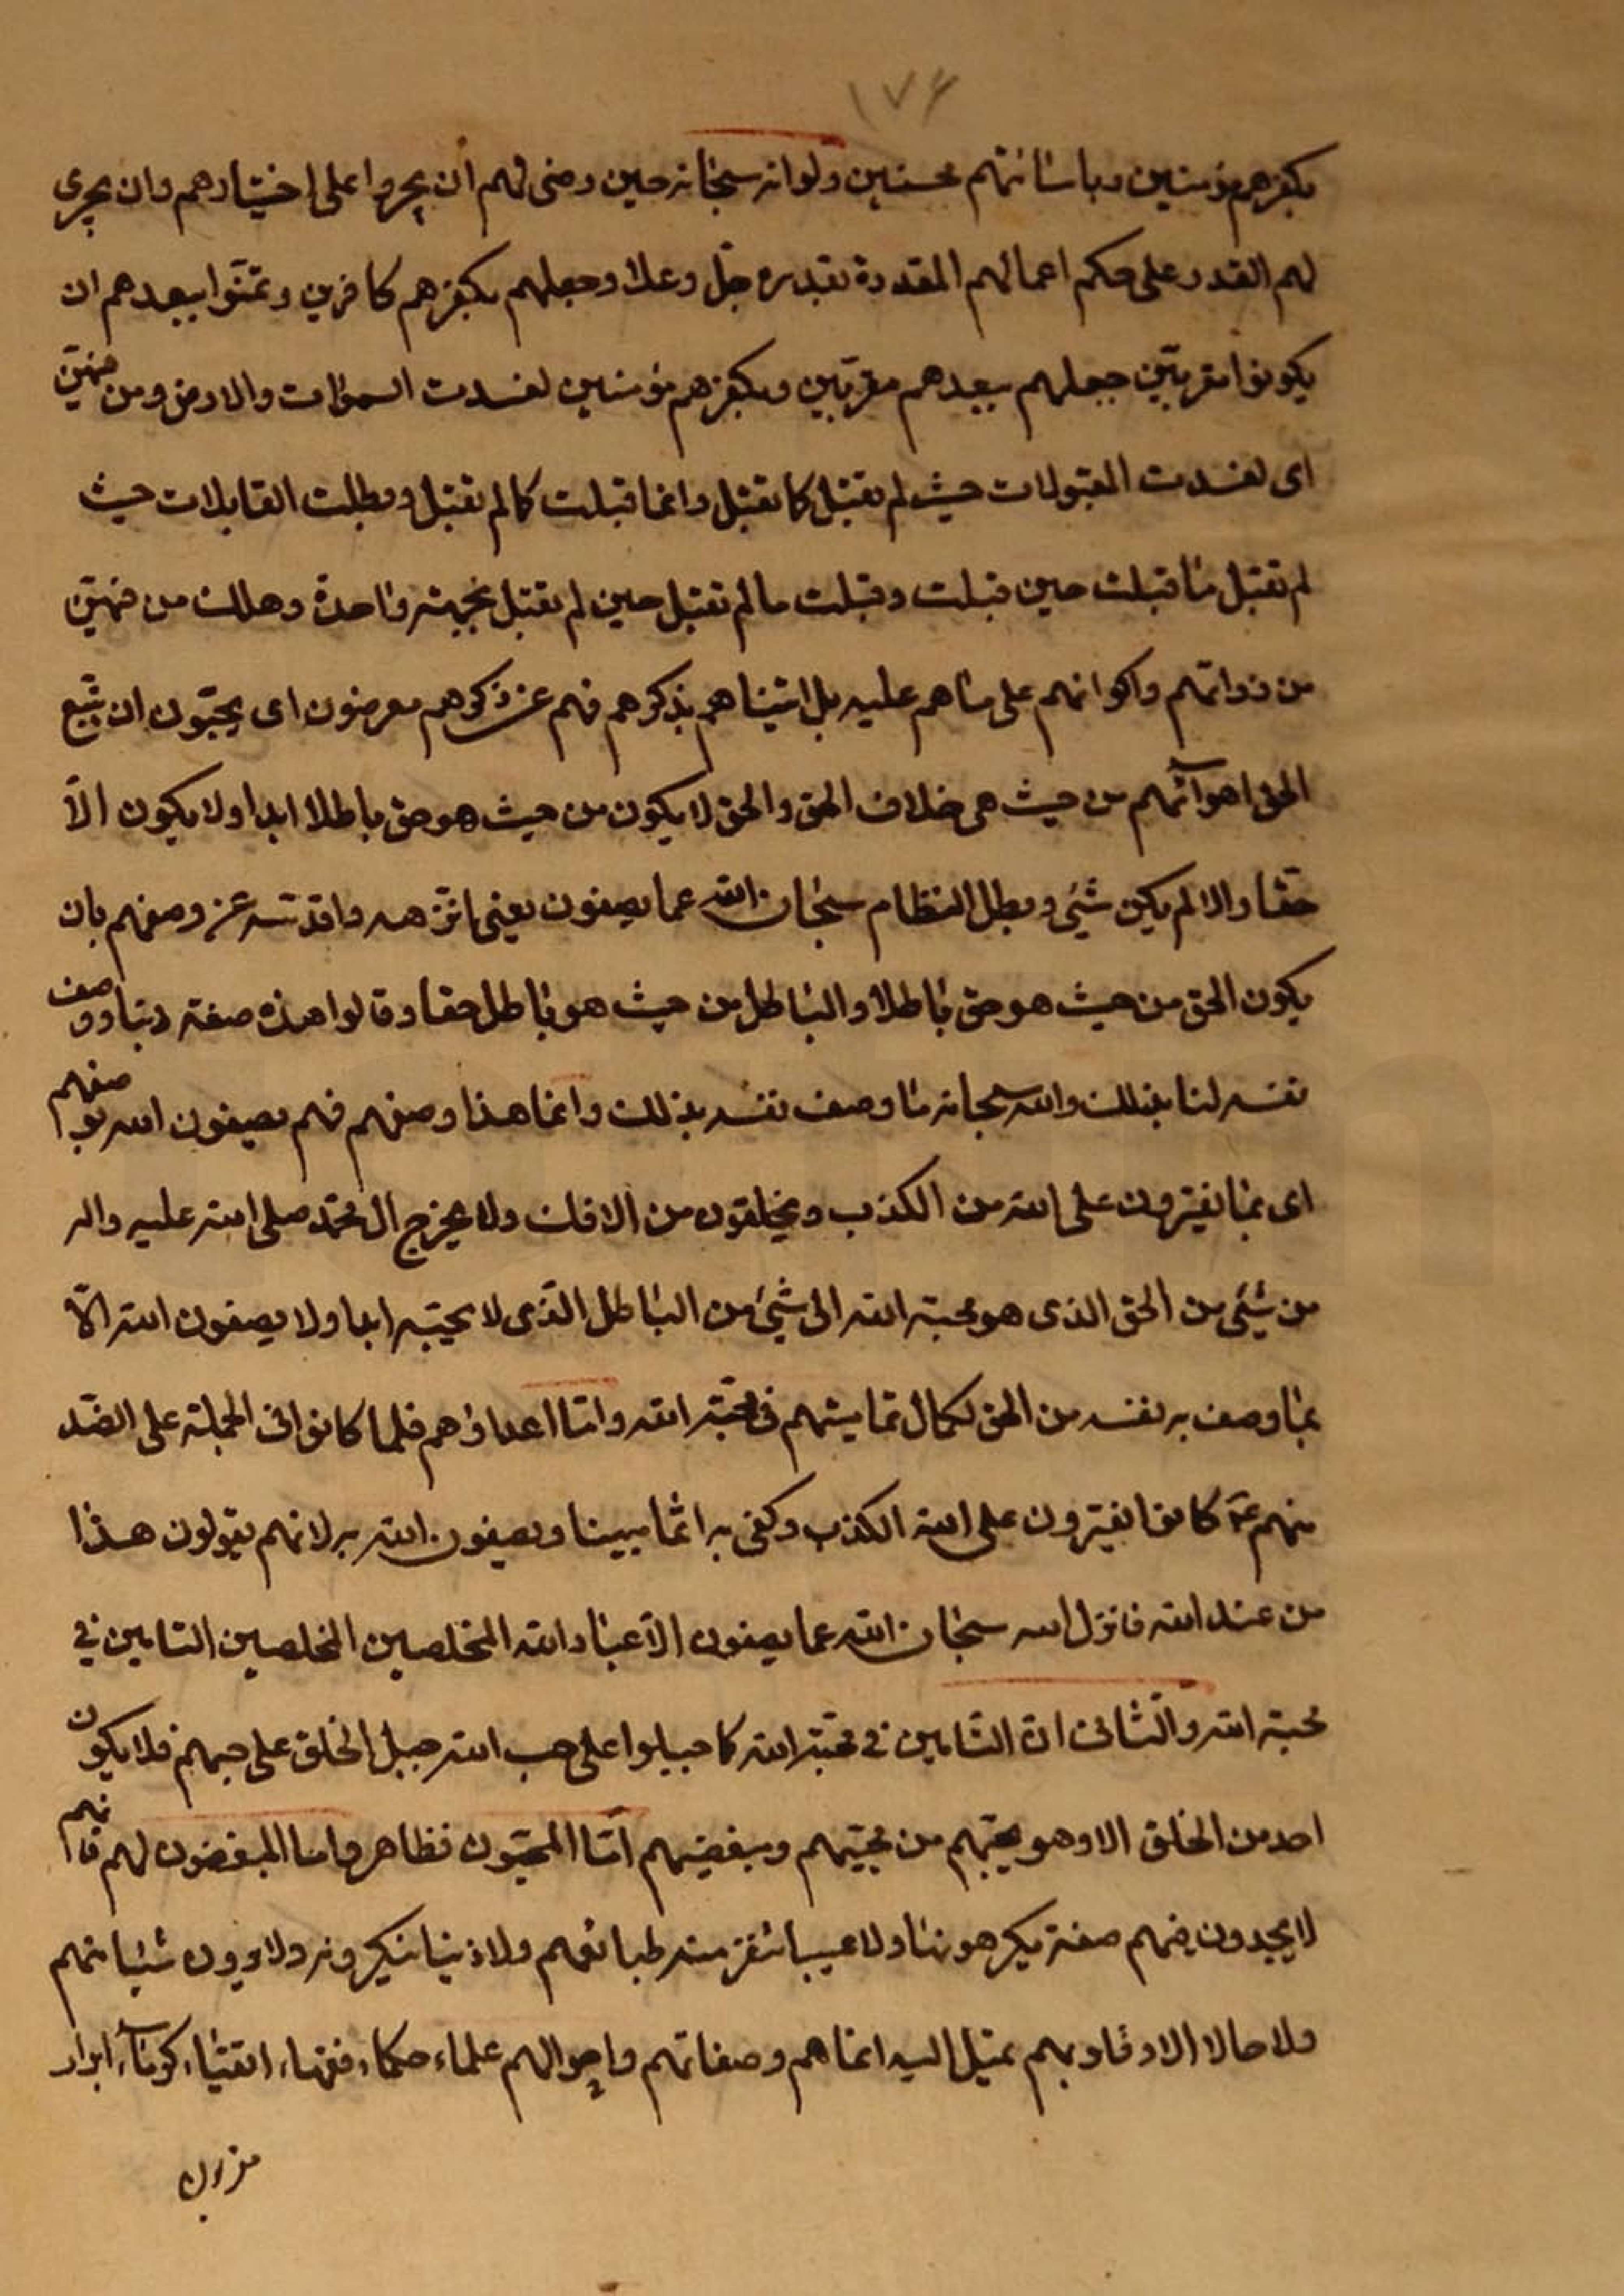 ١٧٤
بكفرهم مؤمنين وباسائتهم محسنين ولو انه سبحانه حين رضى لهم ان يجروا على اختيارهم وان يجرى
لهم القدر على حكم اعمالهم المقدرة بقدره جلّ وعلا وجعلهم بكفرهم كافرين وتمنّوا ببعدهم ان
يكونوا مقربيّن جعلهم ببعدهم مقربّين وبكفرهم مؤمنين لفسدت السموات والارض ومن فيهنّ
اى لفسدت المقبولات حيث لم تقبل كما تقبل وانما قبلت كما لم تقبل وبطلت القابلات حيث
لم تقبل ما قبلت حين قبلت وقبلت ما لم تقبل حين لم تقبل بجهة واحدة وهلك من فيهنّ
من ذواتهم واكوانهم على ما هم عليه بل اتيناهم بذكرهم فهم عن ذكرهم معرضون اى يحبّون ان يتّبع
الحق اهوآئهم من حيث هى خلاف الحق والحق لا يكون من حيث هو حق باطلا ابدا ولا يكون الّا
حقا والا لم يكن شئ وبطل النظام سبحان الله عما يصفون يعنى انزهه واقدسه عن وصفهم بان
يكون الحق من حيث هو حق باطلا والباطل من حيث هو باطل حقا وقالوا هذه صفة ربنا ووصف
نفسه لنا بذلك والله سبحانه ما وصف نفسه بذلك وانما هذا وصفهم فهم يصفون الله بوصفهم
اى بما يفترون على الله من الكذب ويختلقون من الافك ولا يخرج ال محمّد صلى الله عليه واله
من شئ من الحق الذى هو محبة الله الى شئ من الباطل الّذى لا يحبّه ابدا ولا يصفون الله الّا
بما وصف به نفسه من الحق لكمال تماميتهم فى محبّة الله وامّا اعداؤهم فلما كانوا فى الجملة على الضدّ
منهم عۤ كانوا يفترون على الله الكذب وكفى به اثما مبينا ويصفون الله به لانهم يقولون هذا
من عند الله فانزل الله سبحان الله عما يصفون الّا عباد الله المخلصين المخلصين التامين فى
محبة الله والثانى انّ التّامين فى محبّة الله كما جبلوا على حب الله جبل الخلق على حبهم فلا يكون
احد من الخلق الا وهو يحبّهم من محبّيهم ومبغضيهم امّا المحبّون فظاهر واما المبغضون لهم فانهم
لا يجدون فيهم صفة يكرهونها ولا عيبا تنفر منه طبائعهم ولا ذنبا ينكرونه ولا يرون شيئا منهم
ولا حالا الا وقلوبهم تميل اليه انما هم وصفاتهم واحوالهم علماء حكماء فقهاء اتقياء كرمآء ابرار